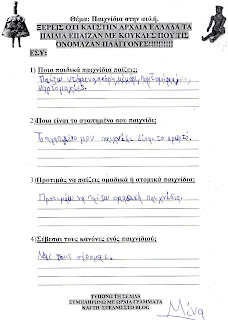 Θέμα: Παιχνίδια στην αυλή.
ΞΕΡΕΙΣ ΟΤΙ ΚΑΙ ΣΤΗΝ ΑΡΧΑΙΑ ΕΛΛΑΔΑ ΤΑ
ΠΑΙΔΙΑ ΕΠΑΙΖΑΝ ΜΕ ΚΟΥΚΛΕΣ ΠΟΥ ΤΙΣ
ΟΝΟΜΑΖΑΝ ΠΛΑΓΓΟΝΕΣ!!!!!!!!!!
ΕΣΥ:
1) Ποια παιδικά παιχνίδια παίζεις;
Παίζω
2)Ποιο είναι το αγαπημένο σου παιχνίδι;
μου παιχνίδι είναι το κρυφτό.
3)Προτιμάς να παίζεις ομαδικά ή ατομικά παιχνίδια;
Προτιμάω να παίζω ομαδικά παιχνίδια.
4)Σέβεσαι τους κανόνες ενός παιχνιδιού;
Ναι τους σέβομαι.
ΤΥΠΩΝΩ ΤΗ ΣΕΛΙΔΑ
ΣΥΜΠΛΗΡΩΝΩ ΜΕ ΩΡΑΙΑ ΓΡΑΜΜΑΤΑ
ΚΑΙ ΤΗ ΣΤΕΛΝΩ ΣΤΟ BLOG
Μίνα